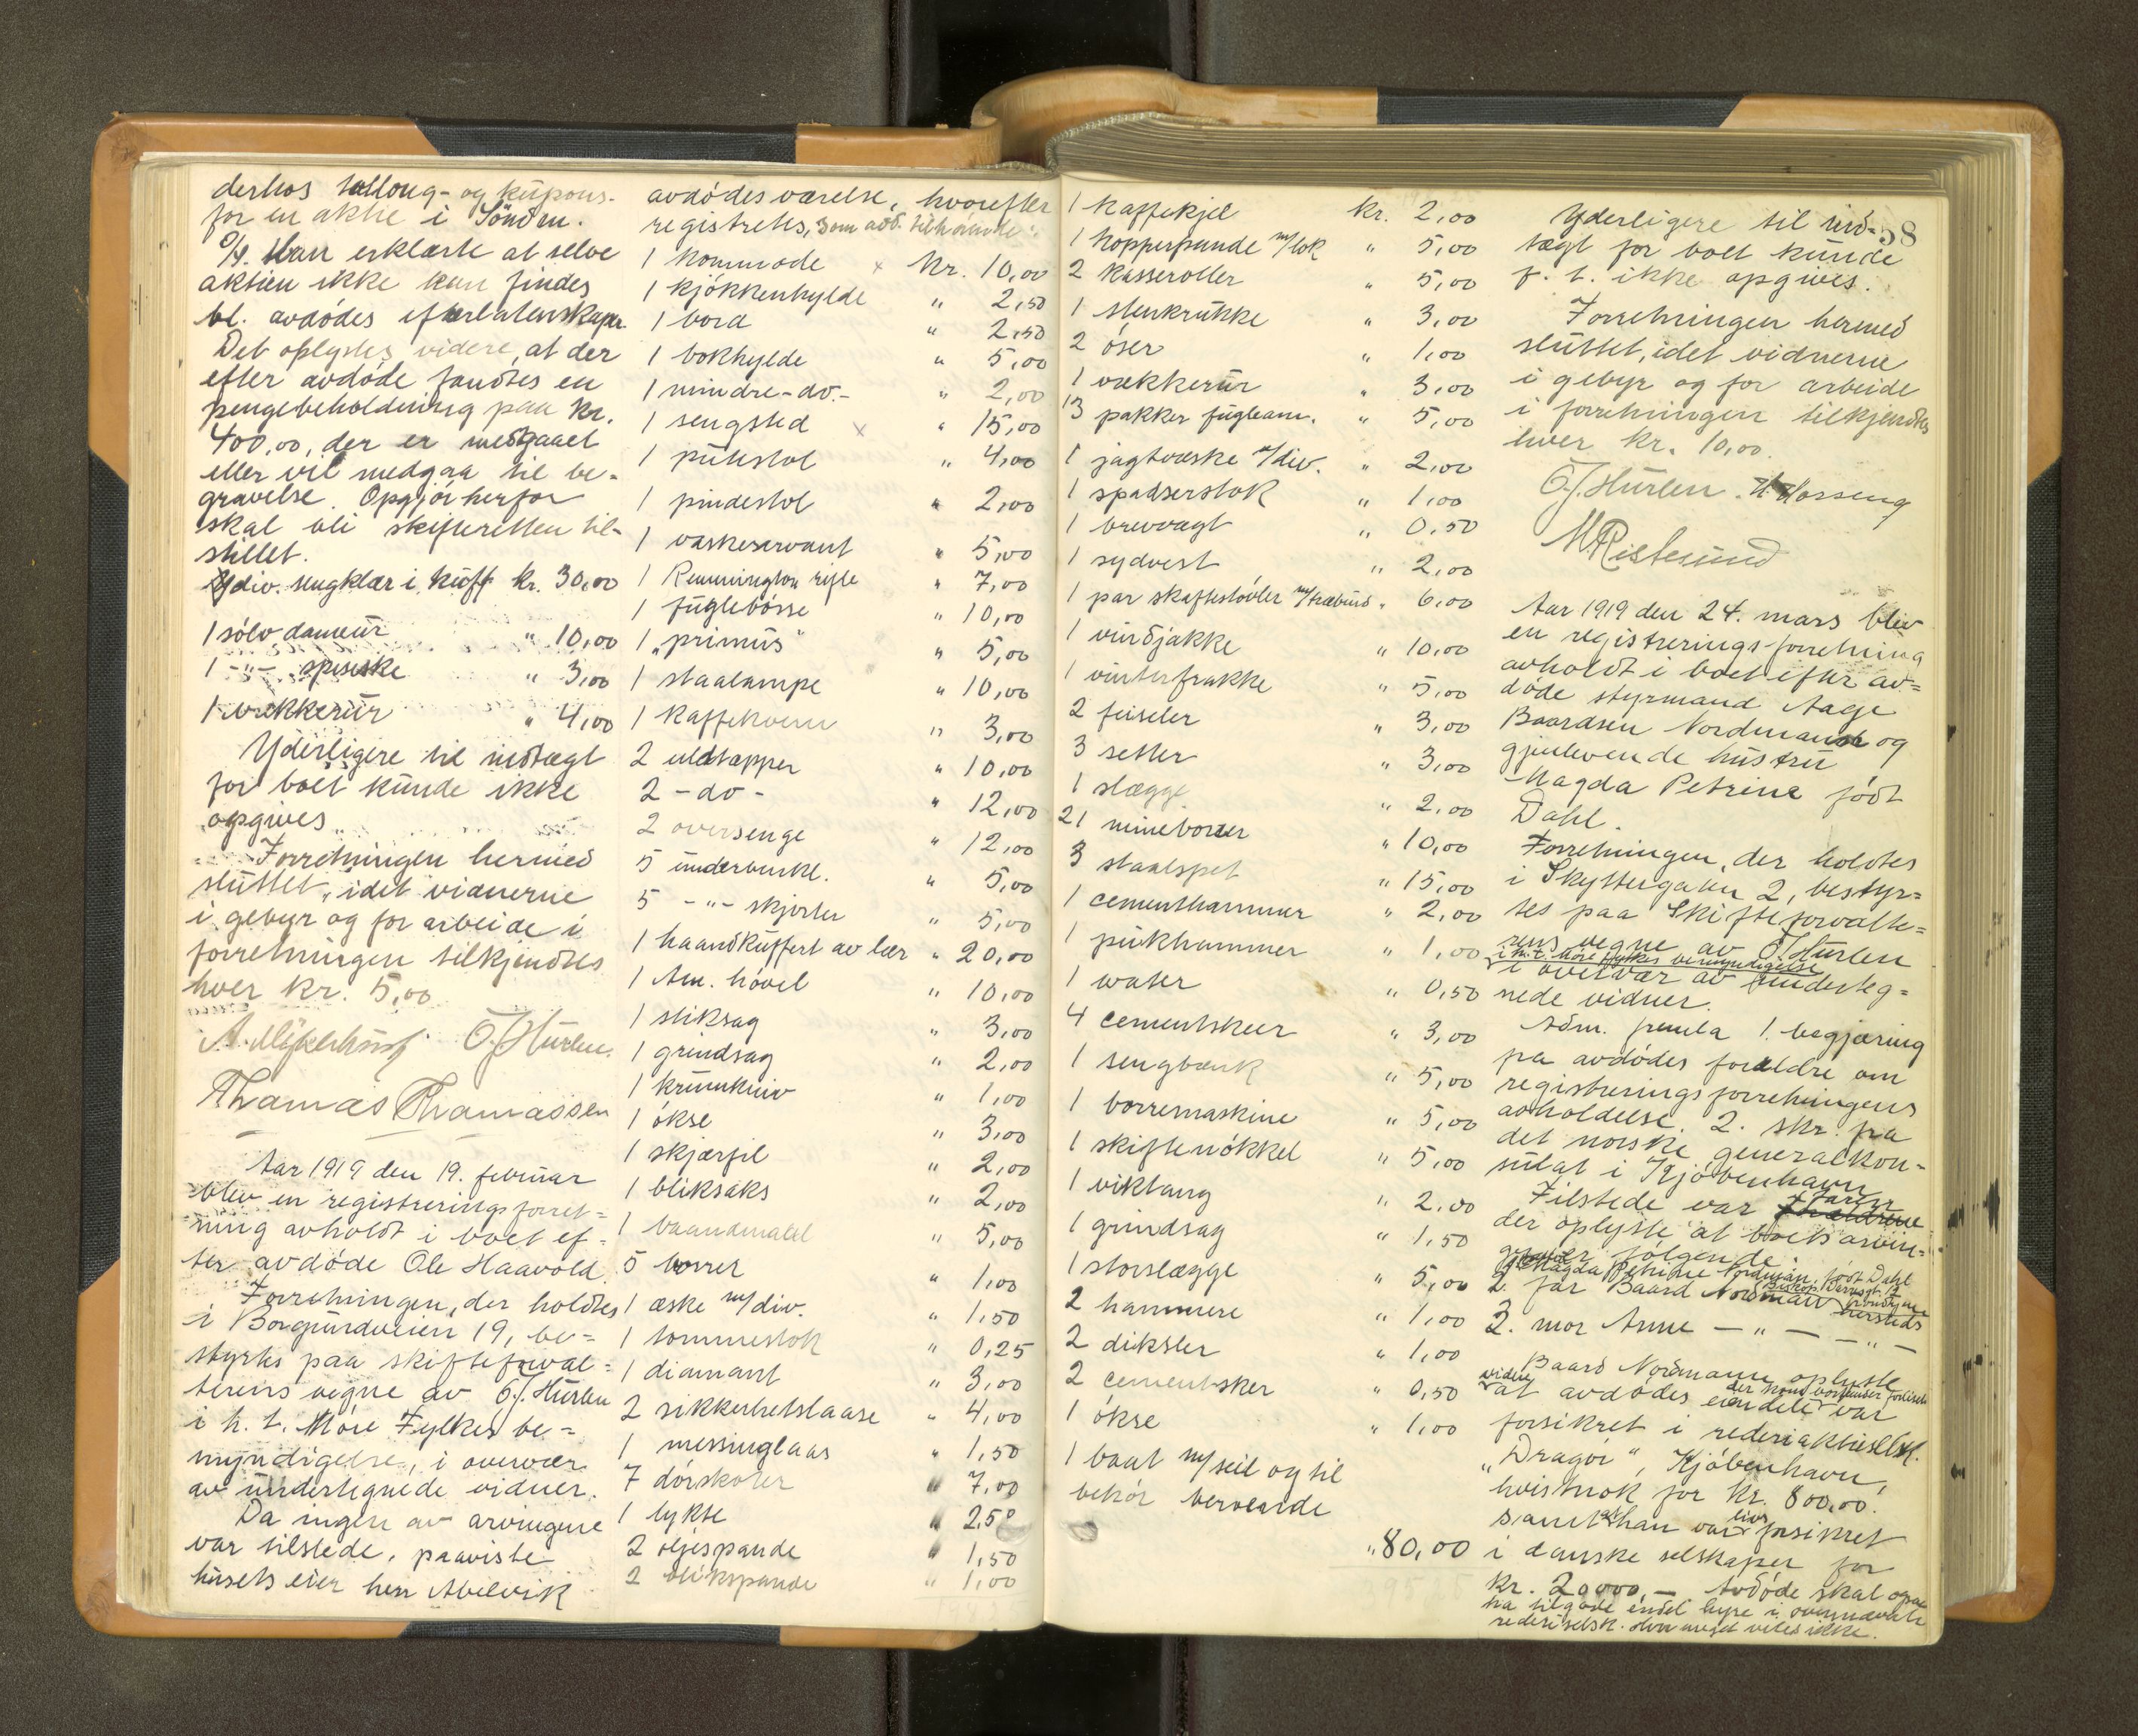 derhos talloug- og kupons-
for en aktie i Söndm.
O/J. Han erklærte at selve
aktien ikke kan findes
bl. avdødes efterlatenskaper
Det oplystes videre, at der
efter avdøde fandtes en
pengebeholdning paa kr.
400,00, der er medgaaet
eller vil medgaa til be-
gravelse. Opgjör herfor
skal bli skifteretten til-
stillet.
div. sengklær i kuff. kr. 30,00
1 sölv dameur " 10,00
1 -"- spiseske " 3,00
1 vækkerur " 4,00
Yderligere til indtægt
for boet kunde ikke
opgives
Forretningen hermed
sluttet, idet vidnerne
i gebyr og for arbeide i
forretningen tilkjendtes
hver kr. 5,00
O.J. Hurlen.
Thomas Thomassen
Aar 1919 den 19. februar
blev en registreringsforret=
ning avholdt i boet ef=
ter avdøde Ole Haavold.
Forretningen, der holdtes
i Borgundveien 19, be=
styrtes paa skifteforval=
terens vegne av O.J. Hurlen
i h. t. Möre Fylkes be=
myndigelse, i overvær
av undertegnede vidner.
Da ingen av arvingene
var tilstede, paaviste
husets eier herr Abelvik
avdödes værelse, hvorefter
registrertes, som avd. tilhörende:
1 kommode x kr. 10,00
1 kjökkenhylde " 2,50
1 bord " 2,50
1 bokhylde " 5,00
1 mindre -do.- " 2,00
1 sengsted x " 15,00
1 putestol " 4,00
1 pindestol " 2,00
1 vaskeservant " 5,00
1 Remmington rifle " 7,00
1 fuglebörse " 10,00
1 "primus" " 5,00
1 staalampe " 10,00
1 kaffekvern " 3,00
2 uldtæpper " 10,00
2 -do- " 12,00
2 oversenge " 12,00
5 underbenkl. " 5,00
5 -"- skjorter " 5,00
1 haandkuffert av lær " 20,00
1 Am. hövel " 10,00
1 stiksag " 3,00
1 grindsag " 2,00
1 krumkniv " 1,00
1 ökse " 3,00
1 skjærfil " 2,00
1 bliksaks " 2,00
1 baandmaal " 5,00
5 borrer " 1,00
1 æske m/div. " 1,50
1 tommestok " 0,25
1 diamant " 3,00
2 sikkerhetslaase " 4,00
1 messinglaas " 1,50
7 dörskoter " 7,00
1 lykte " 2,50
2 oljespande " 1,50
2 blikspande " 1,00
1 kaffekjel kr. 2,00
1 kopperpande m/lok " 5,00
2 kasseroller " 5,00
1 stenkrukke " 3,00
2 öser " 1,00
1 vækkerur " 3,00
13 pakker fugleam. " 5,00
1 jagtvæske m/div. " 2,00
1 spadserstok " 1,00
1 brevvægt " 0,50
1 sydvest " 2,00
1 par skaftestövler m/træbund " 6,00
1 vindjakke " 10,00
1 vinterfrakke " 5,00
2 feiseler " 3,00
3 setter " 3,00
1 slægge " 2,00
21 mineborer " 10,00
3 staalspet " 15,00
1 cementhammer " 2,00
1 pukhammer " 1,00
1 water " 0,50
4 cementskeer " 3,00
1 sengbænk " 5,00
1 borremaskine " 5,00
1 skiftenökkel " 5,00
1 viktang " 2,00
1 grindsag " 1,50
1 storslægge " 5,00
2 hammere " 1,00
2 diksler " 1,00
2 cementsker " 0,50
1 ökse " 1,00
1 baat m/seil og til
behör beroende " 80,00
58
Yderligere til ind=
tægt for boet kunde
f. t. ikke opgives.
Forretningen hermed
sluttet, idet vidnerne
i gebyr og for arbeide
i forretningen tilkjendtes
hver kr. 10,00.
O.J. Hurlen. H. Hosseng
M Ristesund
Aar 1919 den 24. mars blev
en registrerings-forretning
avholdt i boet efter av=
döde styrmand Aage
Baardsen Nordmann og
gjenlevende hustru
Magda Petrine födt
Dahl.
Forretningen, der holdtes
i Skyttergaten 2, bestyr=
tes paa Skifteforvalte=
rens vegne av O.J. Hurlen
i h.t. Möre fylkes bemyndigelse
i overvær av underteg=
nede vidner.
Adm. fremla 1. begjæring
fra avdödes foreldre om
registreringsforretningens
avholdelse. 2. skr. fra
det norske generalkon=
sulat i Kjöbenhavn
Tilstede var faren
der oplyste at boets arvin=
ger er fölgende:
1. Magda Petrine Nordman, födt Dahl
2. far Baard Nordman hersteds
3. mor Anne -"- -"-
Baard Nordmann oplyste
videre at avdödes eiendele var
forsikret i rederiaktieselsk.
"Dragör", Kjöbenhavn,
hvistnok for kr. 800,00.
samt at han var livsforsikret
i danske selskaper for
kr. 20000,- Avdöde skal ogsaa
ha tilgode endel hyre i ovennævnte
rederiselsk. Hvor meget vites ikke.